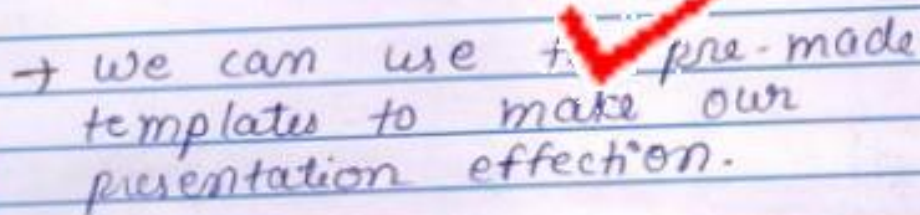 → we can use pre-made
templates to make our
presentation effection.